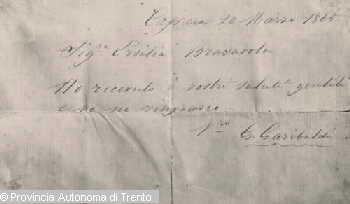 Caprera 20 Marzo 1868
Sig.ra Emilia Bravarola
Ho ricevuto i vostri saluti gentili
e ve ne ringrazio
G. Garibaldi
© Provincia Autonoma di Trento